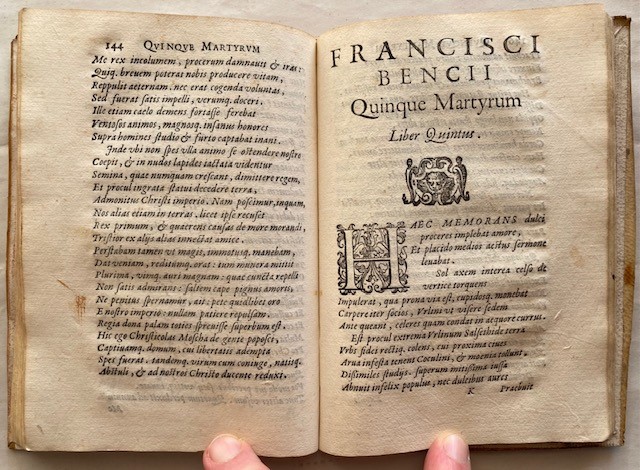 144 QVINQVE MARTYRVM
Me rex incolumem, procerum damnauit & iras:
Quiq. breuem poterat nobis producere vitam,
Reppulit aeternam. nec erat cogenda voluntas,
Sed fuerat satis impelli, verumq. doceri.
Ille etiam caelo demens fortasse ferebat
Ventosos animos, magnosq. insanus honores
Supra homines studio & furto captabat inani.
Inde vbi non spes vlla animo se ostendere nostro
Coepit, & in nudos lapides iactata videntur
Semina, quae numquam crescant, dimittere regem,
Et procul ingrata statui decedere terra,
Admonitus Christi imperio. Nam poscimur, inquam,
Nos alias etiam in terras. licet ipse recuset
Rex primum, & quaerens causas de more morandi,
Tristior ex alijs alias innectat amice.
Perstabam tamen vi magis, immotusq. manebam,
Dat veniam, reditumq. orat: tum munera mittit
Plurima, vimq. auri magnam: quae cuncta repelli
Non satis admirans: saltem cape pignus amoris,
Ne penitus spernamur, ait: pete quidlibet oro
E nostro imperio: nullam patiere repulsam.
Regia dona palam toties spreuisse superbum est.
Hic ego Christicolas Moscha de gente poposci,
Captiuamq. domum, cui libertatis ademptа
Spes fuerat. tandemq. virum cum coniuge, natisq.
Abstuli, & ad nostros Christo ducente reduxi.
FRANCISCI
BENCII
Quinque Martyrum
Liber Quintus.
HAEC MEMORANS dulci
proceres implebat amore,
Et placido medios aestus sermone
leuabat.
Sol axem interea celso de
vertice torquens
Impulerat, qua prona via est, cupidosq. monebat
Carpere iter socios, Vrlini vt visere sedem
Ante queant, celeres quam condat in aequore currus.
Est procul extrema Vrlinum Salsethide terra
Vrbs fidei restiq. colens, cui proxima ciues
Arua infesta tenent Coculini, & moenia tollunt,
Dissimiles studijs. superum mitissima iussa
Abnuit infelix populus, nec dulcibus aures
K Praebuit